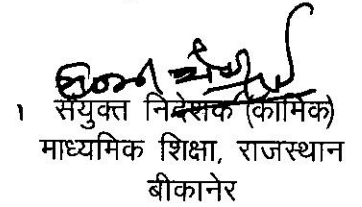 । संयुक्त निदेशक (कार्मिक)
माध्यमिक शिक्षा, राजस्थान
बीकानेर